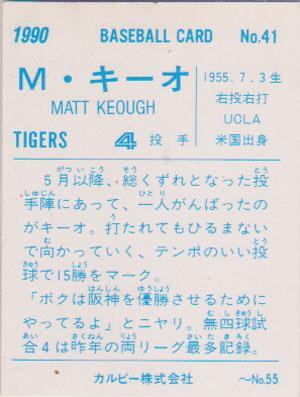 1990 BASEBALL CARD No.41
M・キーオ
MATT KEOUGH
1955.7.3生
右投右打
UCLA
米国出身
TIGERS 4 投手
5月以降、総くずれとなった投
手陣にあって、一人がんばったの
がキーオ。打たれてもひるまない
で向かっていく、テンポのいい投
球で15勝をマーク。
「ボクは阪神を優勝させるために
やってるよ」とニヤリ。無四球試
合4は昨年の両リーグ最多記録。
カルビー株式会社 〜No.55